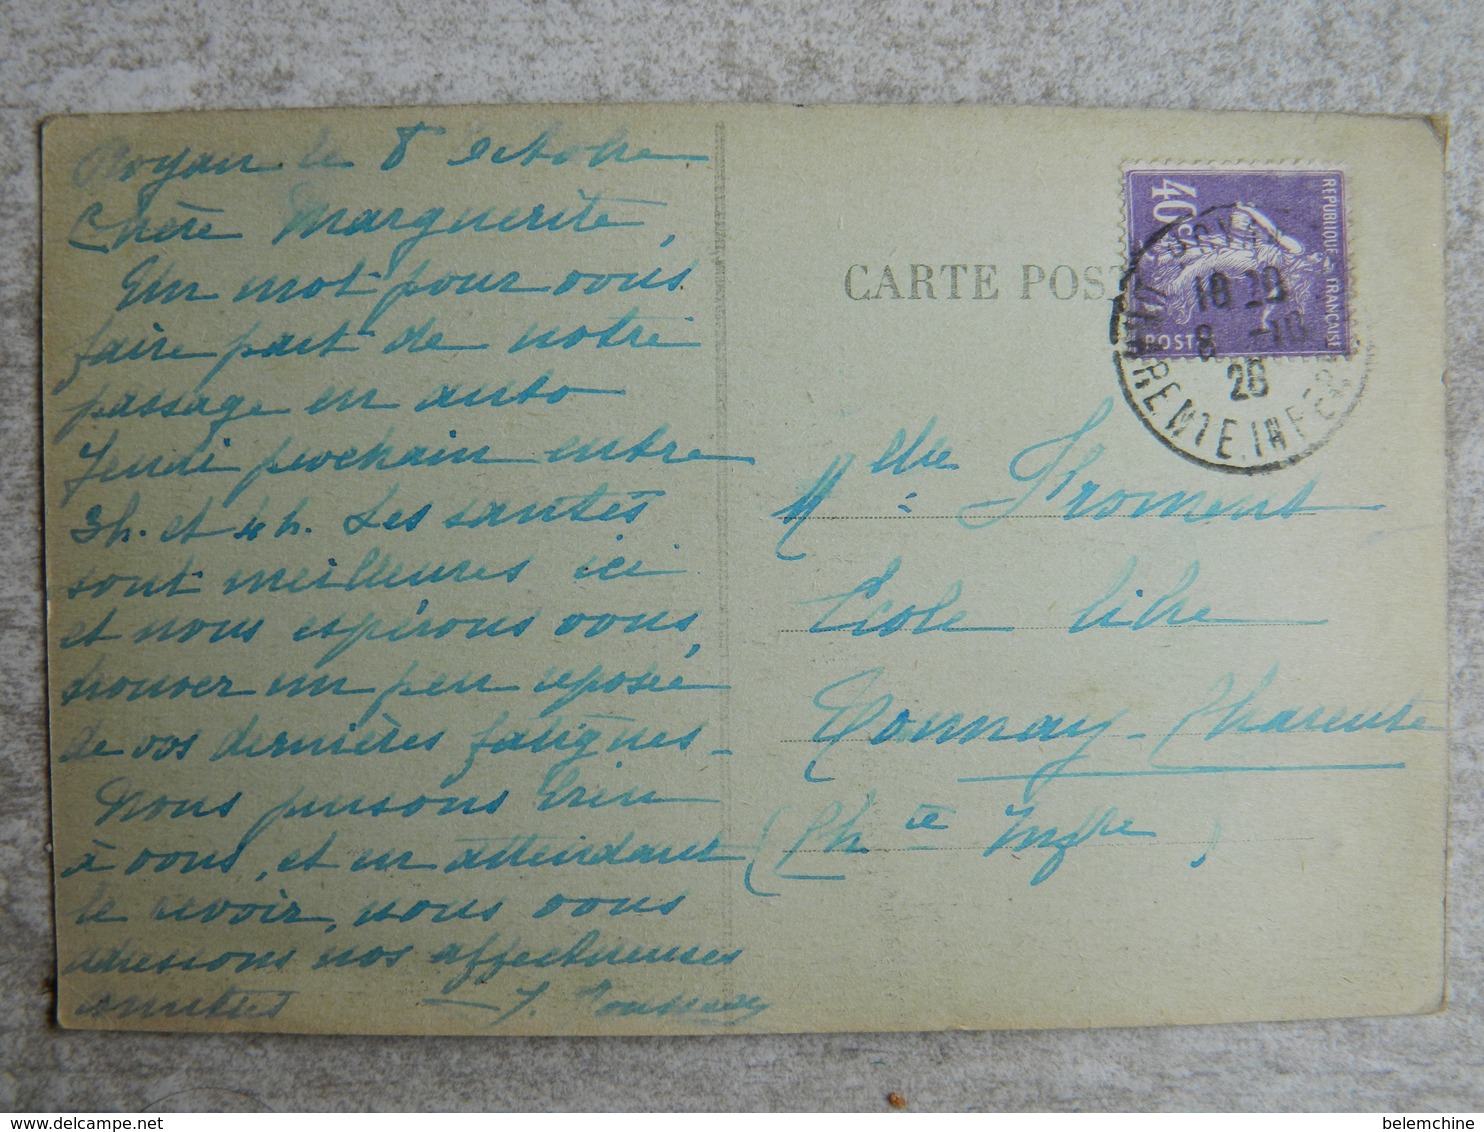 Royan le 8 octobre
Chère Marguerite,
Un mot pour vous
faire part de notre
passage en auto
Jeudi prochain entre
3h. et 4h. Les santés
sont meilleures ici
et nous espérons vous
trouver un peu reposée
de vos dernières fatigues_
Nous pensons bien
à vous, et en attendant
le revoir, nous vous
adressons nos affectueuses
amitiés — J.
CARTE POST
REPUBLIQUE FRANCAISE
40c
POST
18 20
8 -10
26
CHARENTE INFER
Melle Froment
Ecole libre
Tonnay-Charente
(Chte Infre)
delcampe.net
belemchine